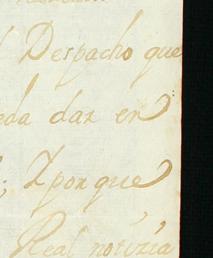 Despacho que
eda dar en
; Y porque
Real notizia